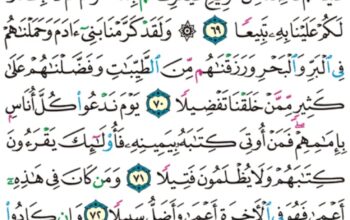 لَكُمْ عَلَيْنَا بِهِۦ تَبِيعًا ٦٩ ۞ وَلَقَدْ كَرَّمْنَا بَنِىٓ ءَادَمَ وَحَمَلْنَٰهُمْ
فِى ٱلْبَرِّ وَٱلْبَحْرِ وَرَزَقْنَٰهُم مِّنَ ٱلطَّيِّبَٰتِ وَفَضَّلْنَٰهُمْ عَلَىٰ
كَثِيرٍ مِّمَّنْ خَلَقْنَا تَفْضِيلًا ٧٠ يَوْمَ نَدْعُوا۟ كُلَّ أُنَاسٍۭ
بِإِمَٰمِهِمْ ۖ فَمَنْ أُوتِىَ كِتَٰبَهُۥ بِيَمِينِهِۦ فَأُو۟لَٰٓئِكَ يَقْرَءُونَ
كِتَٰبَهُمْ وَلَا يُظْلَمُونَ فَتِيلًا ٧١ وَمَن كَانَ فِى هَٰذِهِۦٓ
أَعْمَىٰ فَهُوَ فِى ٱلْءَاخِرَةِ أَعْمَىٰ وَأَضَلُّ سَبِيلًا ٧٢ وَإِن كَادُوا۟